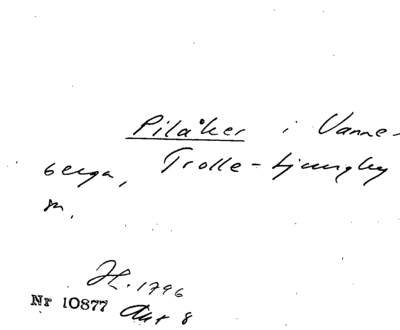 Pilåker i Vanne-
berga, Trolle-Ljungby
sn.
H. 1796
Nr 10877 Akt 8